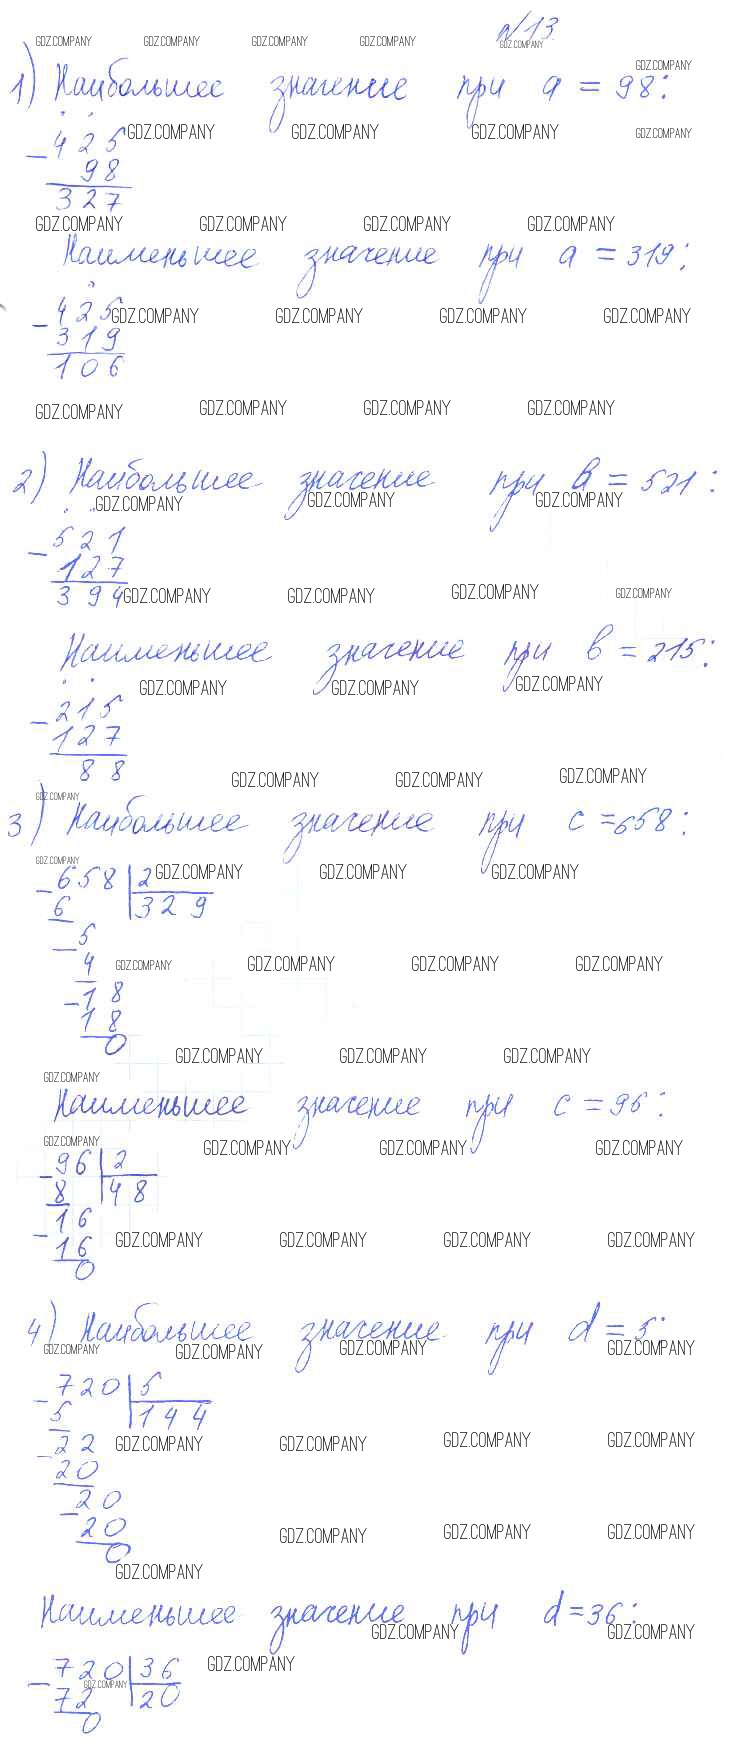 №13
GDZ.COMPANY GDZ.COMPANY GDZ.COMPANY GDZ.COMPANY GDZ.COMPANY
1) Наибольшее значение при a = 98:
GDZ.COMPANY
- 425
GDZ.COMPANY GDZ.COMPANY GDZ.COMPANY GDZ.COMPANY
98
327
GDZ.COMPANY GDZ.COMPANY GDZ.COMPANY GDZ.COMPANY
Наименьшее значение при a = 319:
- 425
GDZ.COMPANY GDZ.COMPANY GDZ.COMPANY GDZ.COMPANY
319
106
GDZ.COMPANY GDZ.COMPANY GDZ.COMPANY GDZ.COMPANY
2) Наибольшее значение при b = 521:
GDZ.COMPANY GDZ.COMPANY GDZ.COMPANY
- 521
127
394
GDZ.COMPANY GDZ.COMPANY GDZ.COMPANY GDZ.COMPANY
Наименьшее значение при b = 215:
GDZ.COMPANY GDZ.COMPANY GDZ.COMPANY
- 215
127
88
GDZ.COMPANY GDZ.COMPANY GDZ.COMPANY
GDZ.COMPANY
3) Наибольшее значение при c = 658:
GDZ.COMPANY GDZ.COMPANY GDZ.COMPANY GDZ.COMPANY
- 658 | 2
6 | 329
- 5
4
GDZ.COMPANY GDZ.COMPANY GDZ.COMPANY GDZ.COMPANY
- 18
18
0
GDZ.COMPANY GDZ.COMPANY GDZ.COMPANY
GDZ.COMPANY
Наименьшее значение при c = 96:
GDZ.COMPANY GDZ.COMPANY GDZ.COMPANY GDZ.COMPANY
- 96 | 2
8 | 48
- 16
16
GDZ.COMPANY GDZ.COMPANY GDZ.COMPANY GDZ.COMPANY
0
4) Наибольшее значение при d = 5:
GDZ.COMPANY GDZ.COMPANY GDZ.COMPANY GDZ.COMPANY
- 720 | 5
5 | 144
- 22
GDZ.COMPANY GDZ.COMPANY GDZ.COMPANY GDZ.COMPANY
20
- 20
20
GDZ.COMPANY GDZ.COMPANY GDZ.COMPANY
0
GDZ.COMPANY
Наименьшее значение при d = 36:
GDZ.COMPANY GDZ.COMPANY
- 720 | 36
GDZ.COMPANY GDZ.COMPANY
72 | 20
0